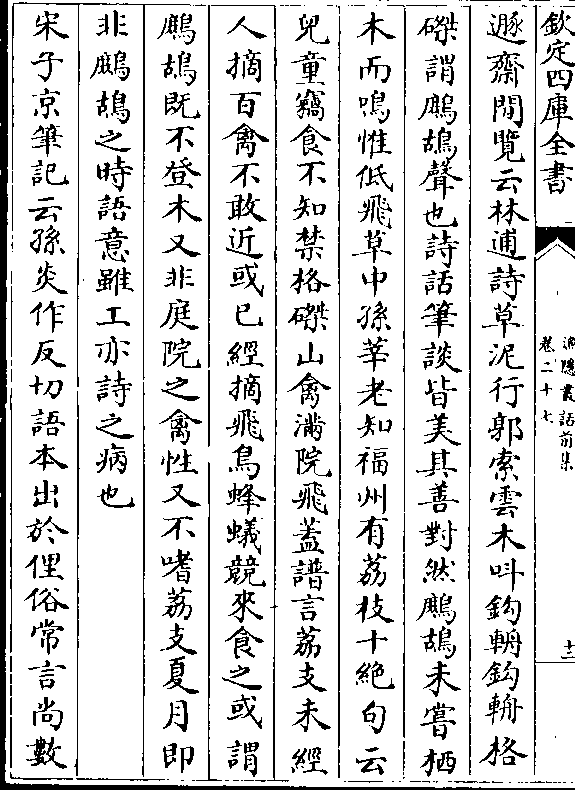 欽定四庫全書
漁隱叢話前集
卷二十七
十二
遯齋閒覽云林逋詩草泥行郭索雲木叫鈎輈鈎輈格
磔謂鷓鴣聲也詩話筆談皆美其善對然鷓鴣未嘗栖
木而鳴惟低飛草中孫莘老知福州有荔枝十絶句云
兒童竊食不知禁格磔山禽滿院飛蓋譜言荔支未經
人摘百禽不敢近或已經摘飛鳥蜂蟻競來食之或謂
鷓鴣既不登木又非庭院之禽性又不嗜荔支夏月即
非鷓鴣之時語意雖工亦詩之病也
宋子京筆記云孫炎作反切語本出於俚俗常言尚數